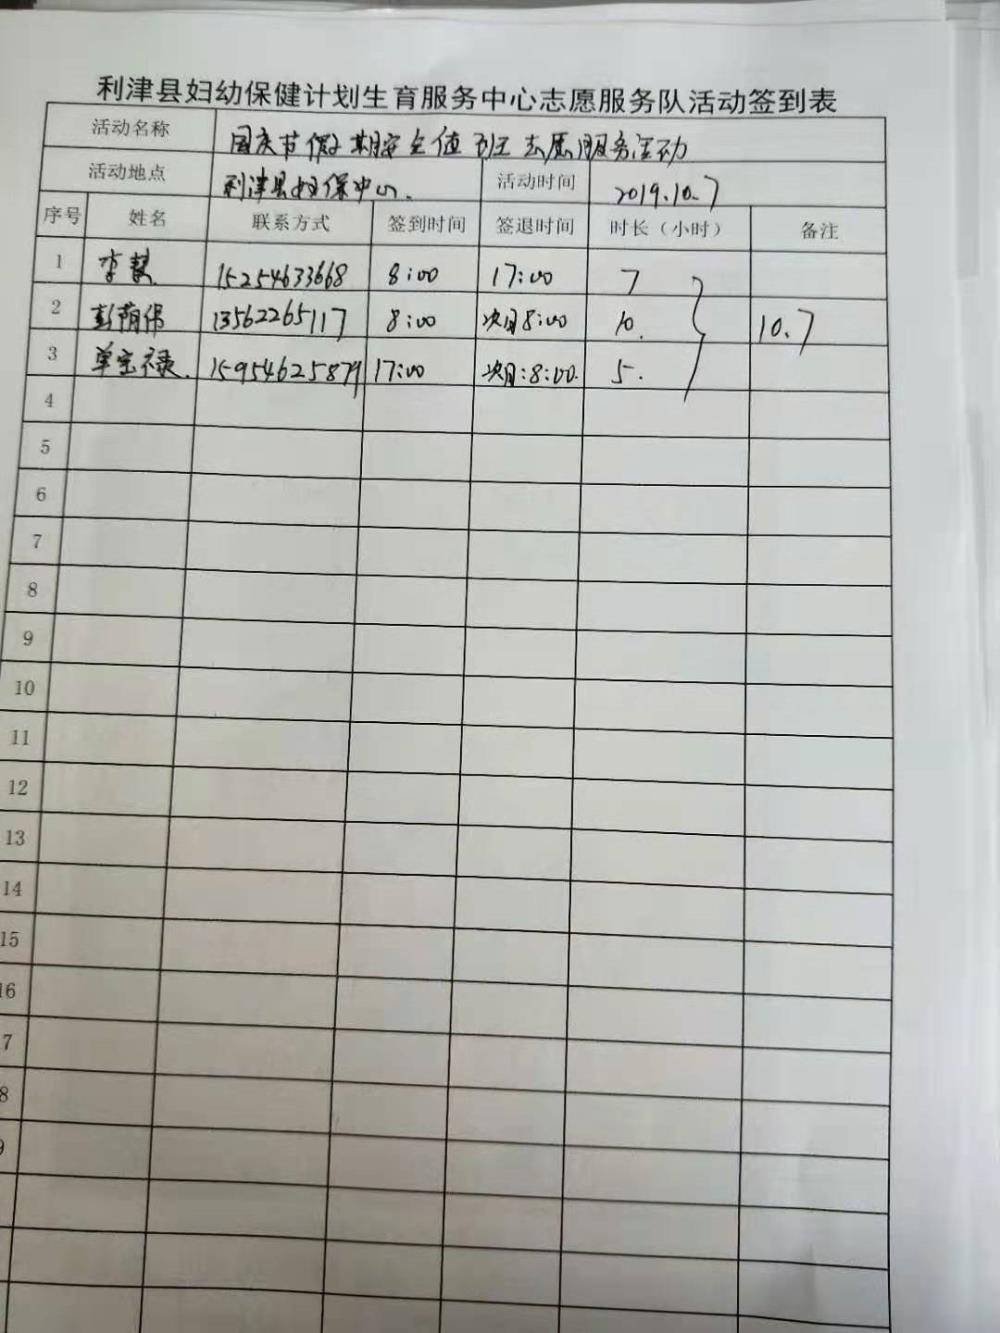 利津县妇幼保健计划生育服务中心志愿服务队活动签到表
活动名称 国庆节假期安全值班志愿服务活动
活动地点 利津县妇保中心. 活动时间 2019.10.7
序号 姓名 联系方式 签到时间 签退时间 时长（小时） 备注
1 李慧 15254633668 8:00 17:00 7
2 彭荫伟 13562265117 8:00 次日8:00 10. 10.7
3 单宝禄. 15954625879 17:00 次日:8:00. 5.
4
5
6
7
8
9
10
11
12
13
14
15
16
7
8
9